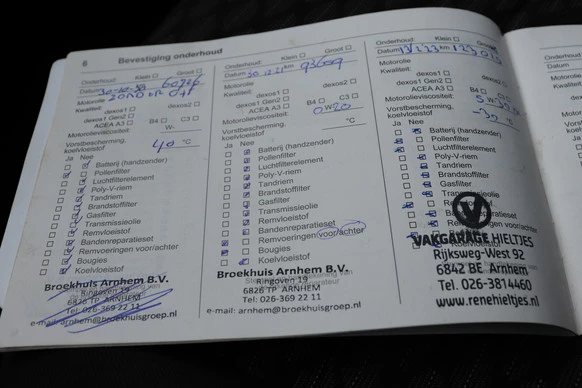 8 Bevestiging onderhoud
Onderhoud: Klein Groot
Datum km 60726
Motorolie
Kwaliteit: dexos2
dexos1
dexos1 Gen2 B4 C3
ACEA A3
Motorolieviscositeit:
W-
Vorstbescherming, koelvloeistof 40 °C
Ja Nee
Batterij (handzender)
Pollenfilter
Luchtfilterelement
Poly-V-riem
Tandriem
Brandstoffilter
Gasfilter
Transmissieolie
Remvloeistof
Bandenreparatieset
Remvoeringen voor/achter
Bougies
Koelvloeistof
Broekhuis Arnhem B.V.
Ringoven 19
6826 TP ARNHEM
Tel: 026-369 22 11
e-mail: arnhem@broekhuisgroep.nl
Onderhoud: Klein Groot
Datum 30.12.21 km 93609
Motorolie
Kwaliteit: dexos2
dexos1
dexos1 Gen2 B4 C3
ACEA A3
Motorolieviscositeit: 0 W- 20
Vorstbescherming, koelvloeistof °C
Ja Nee
Batterij (handzender)
Pollenfilter
Luchtfilterelement
Poly-V-riem
Tandriem
Brandstoffilter
Gasfilter
Transmissieolie
Remvloeistof
Bandenreparatieset
Remvoeringen voor/achter
Bougies
Koelvloeistof
Broekhuis Arnhem B.V.
Ringoven 19
6826 TP ARNHEM
Tel: 026-369 22 11
e-mail: arnhem@broekhuisgroep.nl
Onderhoud: Klein Groot
Datum km
Motorolie
Kwaliteit: dexos2
dexos1
dexos1 Gen2 B4 C3
ACEA A3
Motorolieviscositeit:
Vorstbescherming, koelvloeistof
Ja Nee
Batterij (handzender)
Pollenfilter
Luchtfilterelement
Poly-V-riem
Tandriem
Brandstoffilter
Gasfilter
Transmissieolie
VAKGARAGE HIELTJES
Rijksweg-West 92
6842 BE Arnhem
Tel. 026-3814460
www.renehieltjes.nl
Onderhoud:
Datum
Motorolie
Kwaliteit: